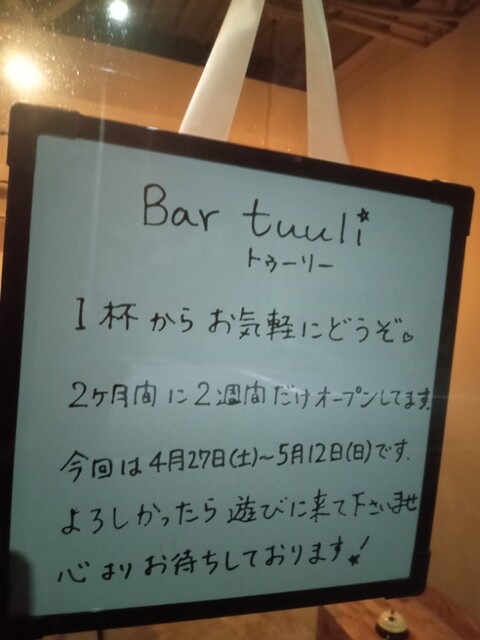 Bar tuuli
トゥーリー
1杯からお気軽にどうぞ。
2ケ月間に2週間だけオープンしてます。
今回は4月27日(土)〜5月12日(日)です。
よろしかったら遊びに来て下さいませ
心よりお待ちしております!